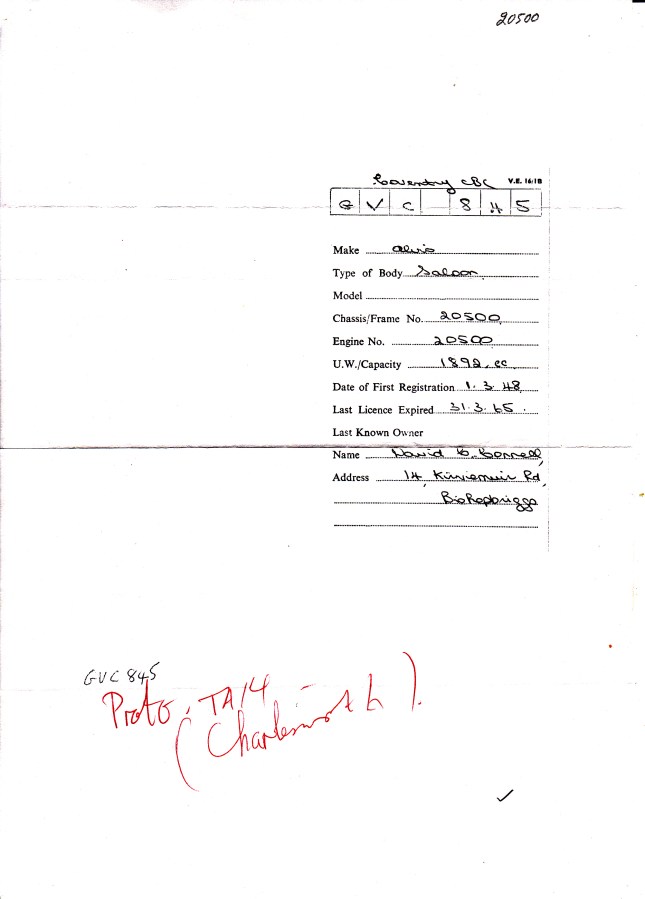 20500
Coventry CBC V.E. 16/1B
G V C 8 4 5
Make Alvis
Type of Body Saloon
Model
Chassis/Frame No. 20500
Engine No. 20500
U.W./Capacity 1892 cc
Date of First Registration 1.3.48
Last Licence Expired 31.3.65.
Last Known Owner
Name David
Address 14, Kirriemuir Rd,
Bishopbriggs
GVC 845
Proto, TA14
(Charlesworth).